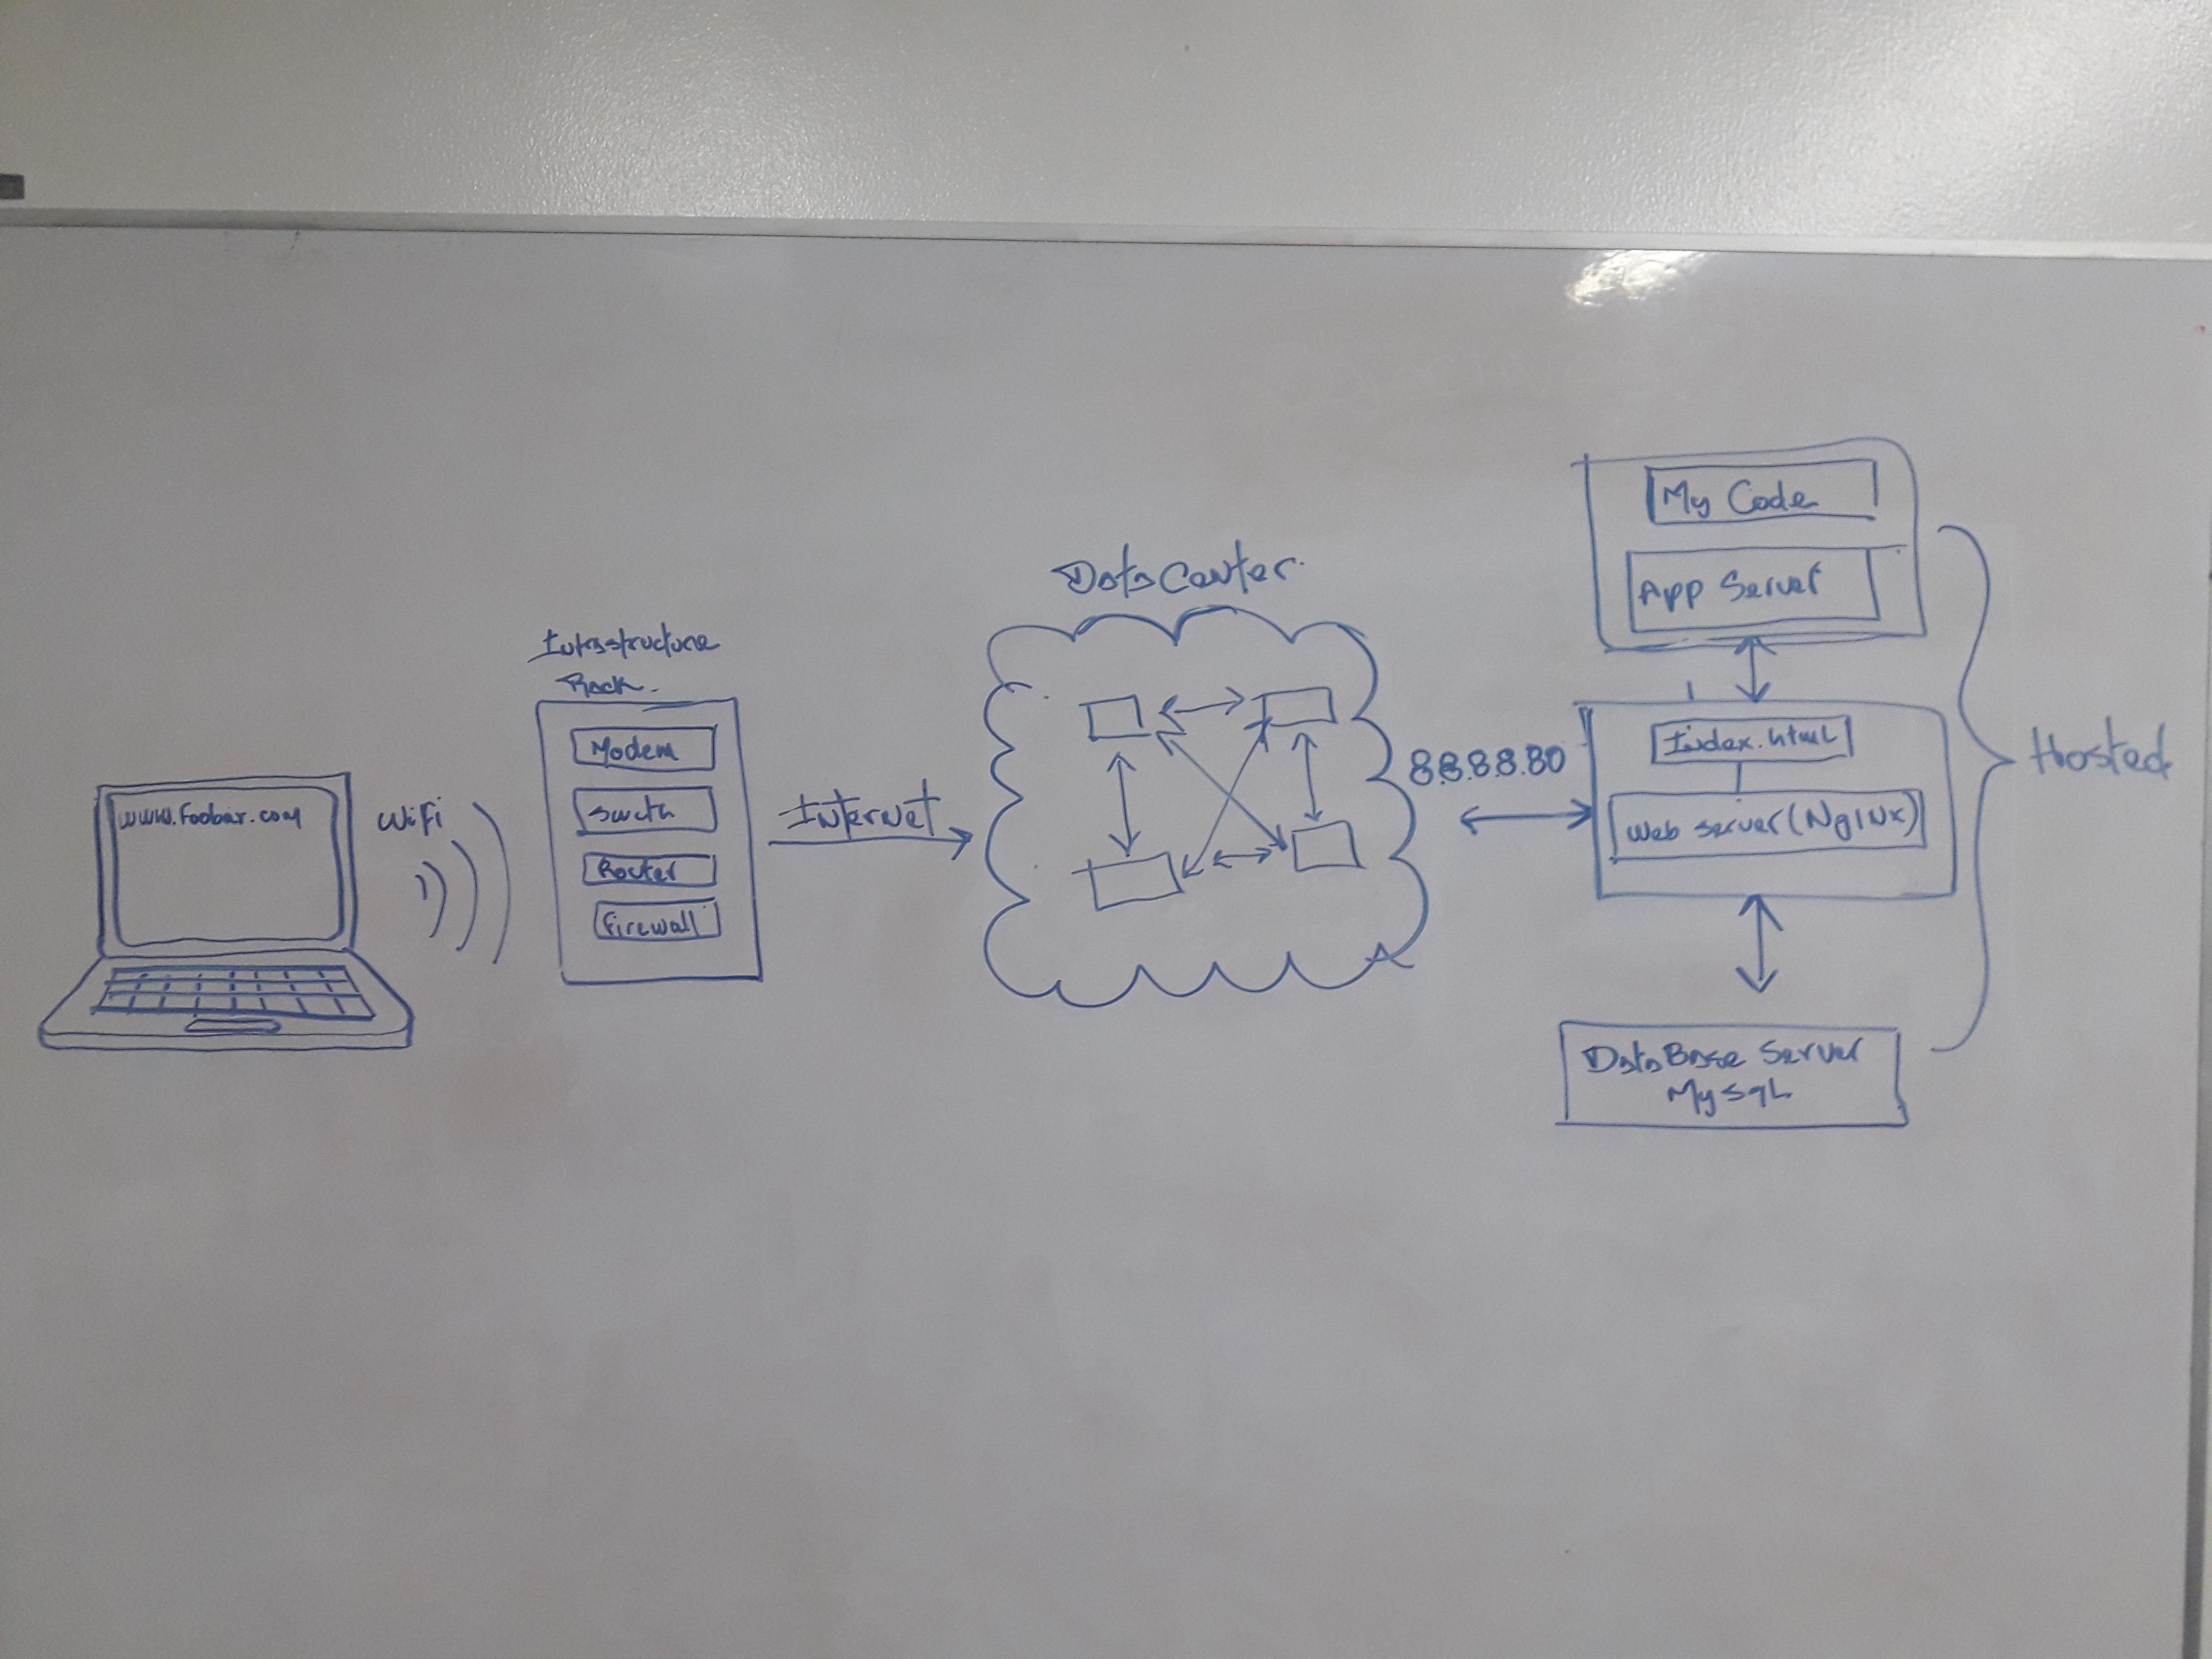 www.foobar.com
WiFi
Infrastructure
Rack.
Modem
Swcth
Router
firewall
Internet
Data Center.
8.8.8.8.80
My Code
App Server
Index.html
Web server (NgiNx)
Hosted
DataBase Server
MysqL